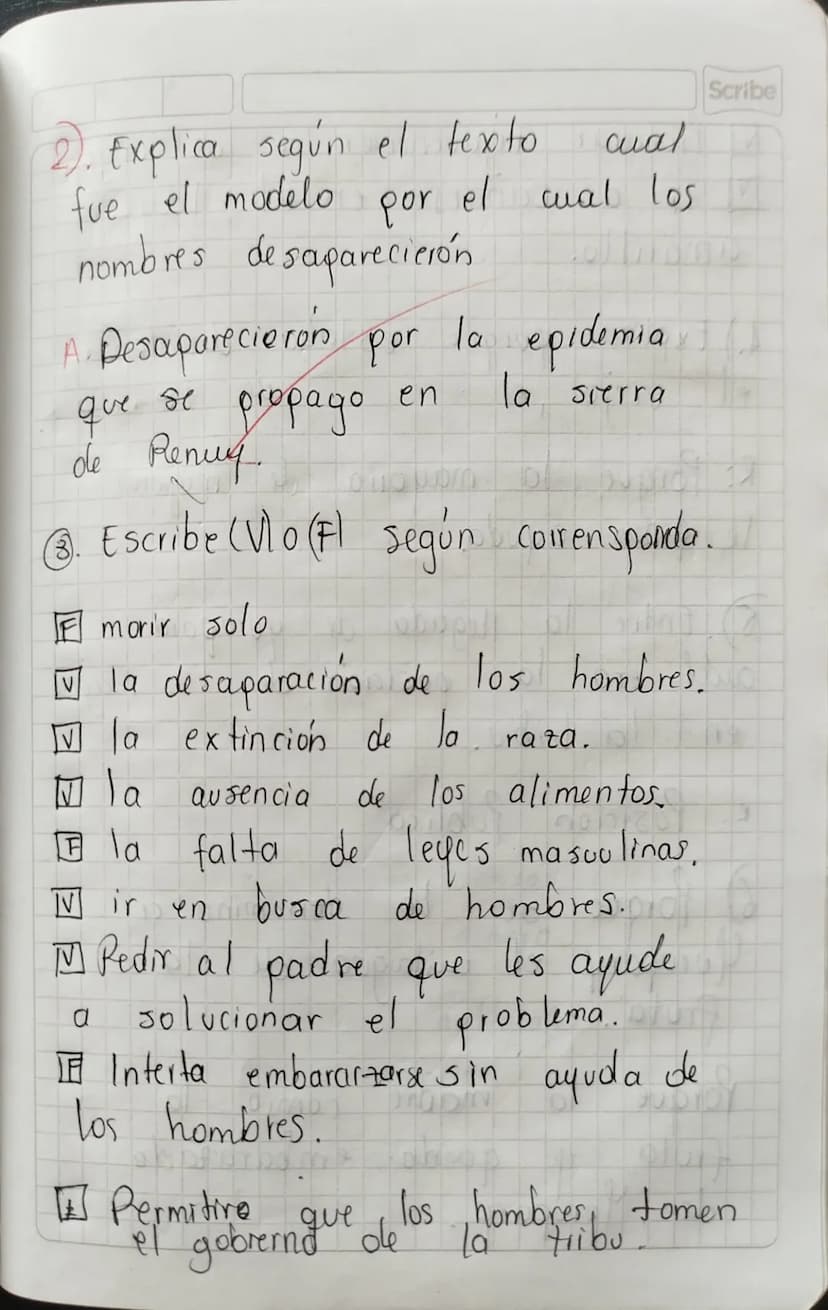 Scribe
2). Explica según el texto cual
fue el modelo por el cual los
nombres desaparecierón
A. Desaparecierón por la epidemia
que se propago en la sierra
de Penuy.
③. Escribe (V) o (F) según correnspoнda.
F morir solo
V la desaparación de los hombres.
V la extinción de la raza.
V la ausencia de los alimentos.
F la falta de leyes masculinas.
V ir en busca de hombres.
V Pedir al padre que les ayude
a solucionar el problema.
F Interta embararzarse sin ayuda de
los hombres.
F Permitire que los hombres tomen
el gobierno de la tribu.